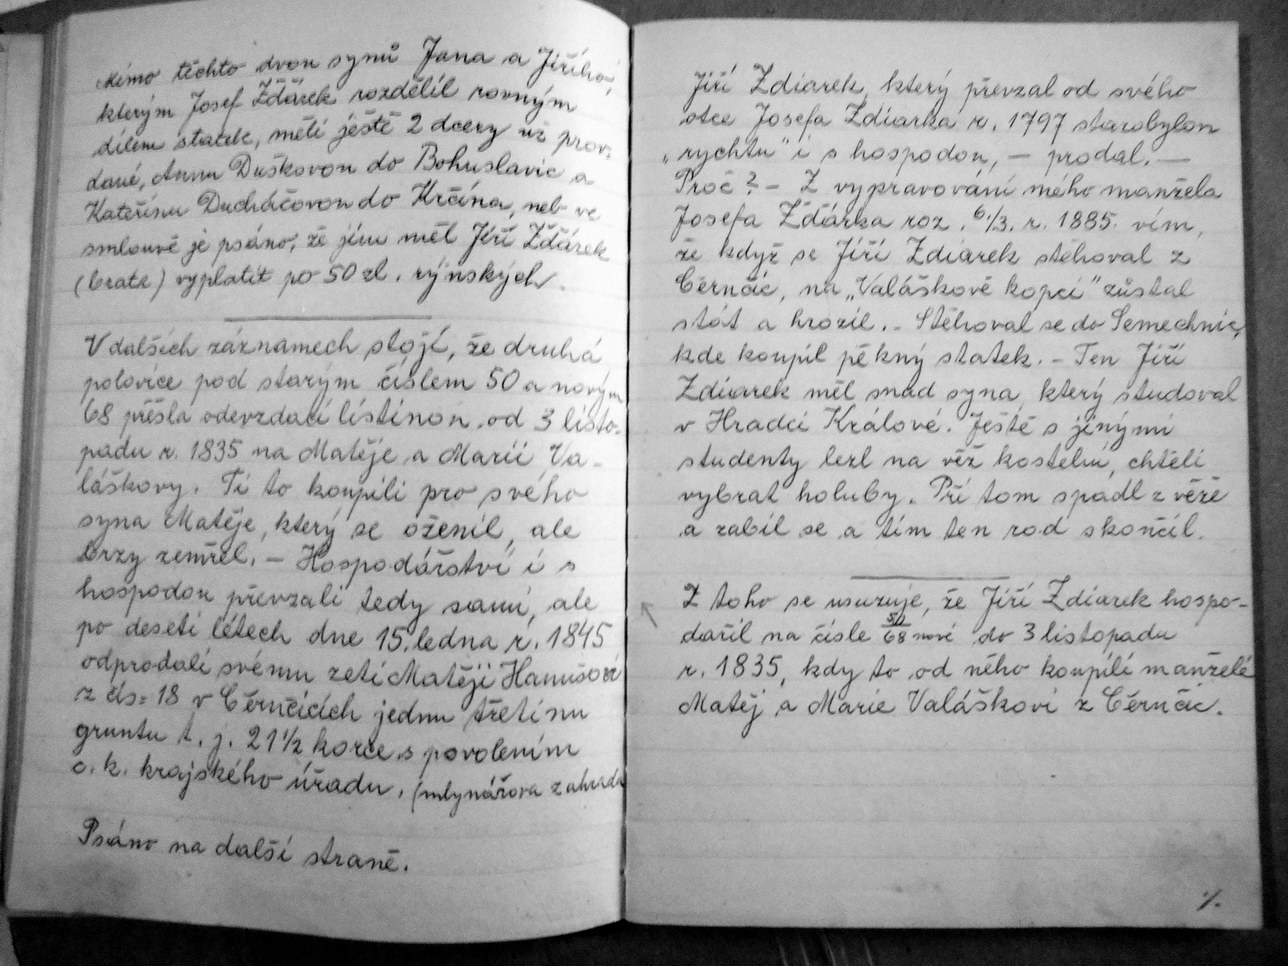 Mimo těchto dvou synů Jana a Jiřího,
kterým Josef Žďárek rozdělil rovným
dílem statek, měli ještě 2 dcery už prov-
dané, Annu Duškovou do Bohuslavic a
Kateřinu Ducháčovou do Krčína, neb ve
smlouvě je psáno, že jim měl Jiří Žďárek
(bratr) vyplatit po 50 zl. rýnských.
V dalších záznamech stojí, že druhá
polovice pod starým číslem 50 a novým
68 přešla odevzdací listinou od 3 listo-
padu r. 1835 na Matěje a Marii Va-
láškovy. Ti to koupili pro svého
syna Matěje, který se oženil, ale
brzy zemřel. – Hospodářství i s
hospodou převzali tedy sami, ale
po deseti létech dne 15. ledna r. 1845
odprodali svému zeti Matěji Hanušovi
z čís: 18 v Čěrnčicích jednu třetinu
gruntu t. j. 21 1/2 korce s povolením
c. k. krajského úřadu. (mlynářova zahrada
Psáno na další straně.
Jiří Zdiarek, který převzal od svého
otce Josefa Zdiarka r. 1797 starobylou
„rychtu" i s hospodou, – prodal. –
Proč? – Z vypravování mého manžela
Josefa Žďárka roz. 6./3. r. 1885. vím,
že když se Jiří Zdiarek stěhoval z
Čěrnčic, na „Valáškově kopci" zůstal
stát a hrozil. – Stěhoval se do Semechnic,
kde koupil pěkný statek. – Ten Jiří
Zdiarek měl snad syna, který studoval
v Hradci Králové. Ještě s jinými
studenty lezl na věž kostelní, chtěli
vybrat holuby. Při tom spadl z věže
a zabil se a tím ten rod skončil.
Z toho se usuzuje, že Jiří Zdiarek hospo-
dařil na čísle 50/68 nové do 3 listopadu
r. 1835, kdy to od něho koupili manželé
Matěj a Marie Valáškovi z Čěrnčic.
./.